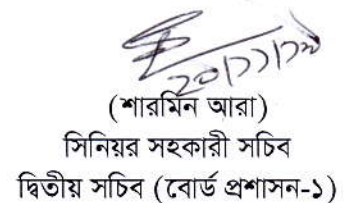 ২০/১১/১৯
(শারমিন আরা)
সিনিয়র সহকারী সচিব
দ্বিতীয় সচিব (বোর্ড প্রশাসন-১)